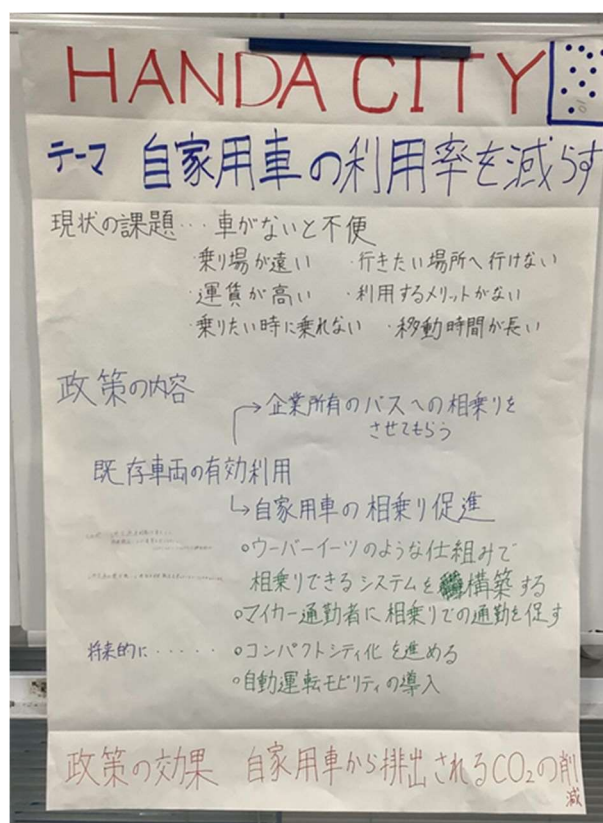 HANDA CITY
10
テーマ 自家用車の利用率を減らす
現状の課題… 車がないと不便
・乗り場が遠い ・行きたい場所へ行けない
・運賃が高い ・利用するメリットがない
・乗りたい時に乗れない ・移動時間が長い
政策の内容
→企業所有のバスへの相乗りを
させてもらう
既存車両の有効利用
↳自家用車の相乗り促進
○ウーバーイーツのような仕組みで
相乗りできるシステムを構築する
○マイカー通勤者に相乗りでの通勤を促す
将来的に····· ○コンパクトシティ化を進める
○自動運転モビリティの導入
政策の効果 自家用車から排出されるCO2の削減